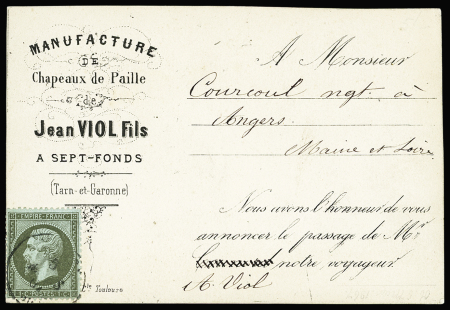 MANUFACTURE
DE
Chapeaux de Paille
de
Jean VIOL Fils
A SEPT-FONDS
(Tarn-et-Garonne)
EMPIRE FRANC
Toulouse
A Monsieur
Courcoul ngt. à
Angers.
Maine et Loire
Nous avons l'honneur de vous
annoncer le passage de Mr
notre voyageur
A. Viol